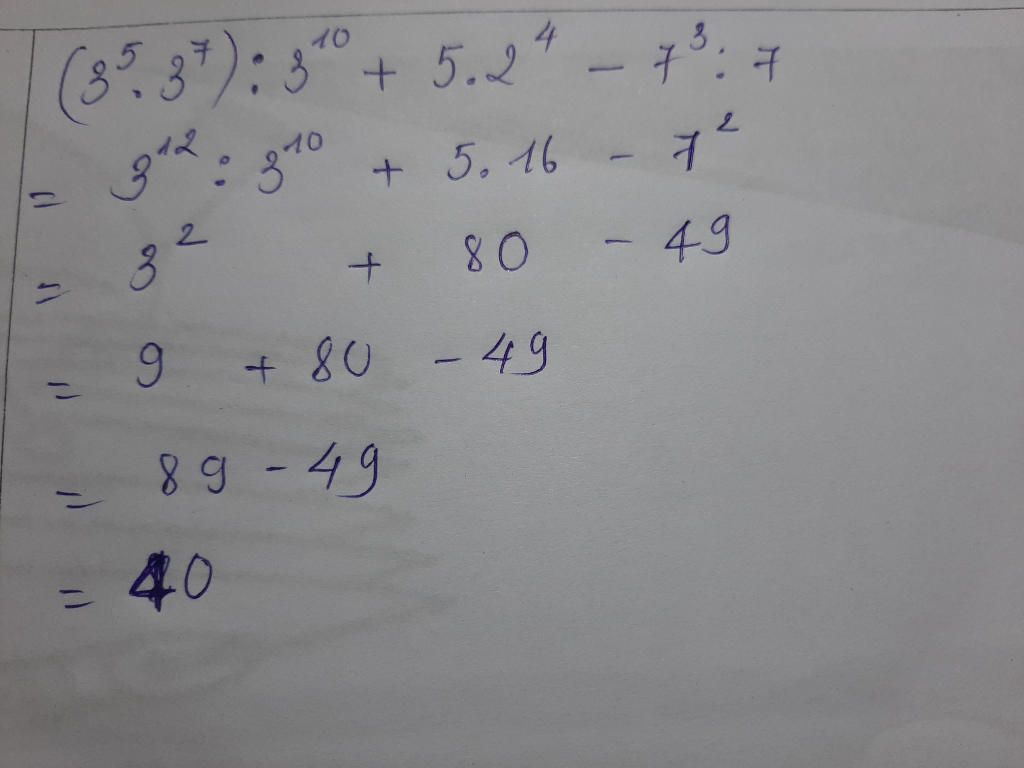 (3⁵.3⁷):3¹⁰ + 5.2⁴ - 7³:7
= 3¹²:3¹⁰ + 5.16 - 7²
= 3² + 80 - 49
= 9 + 80 - 49
= 89 - 49
= 40